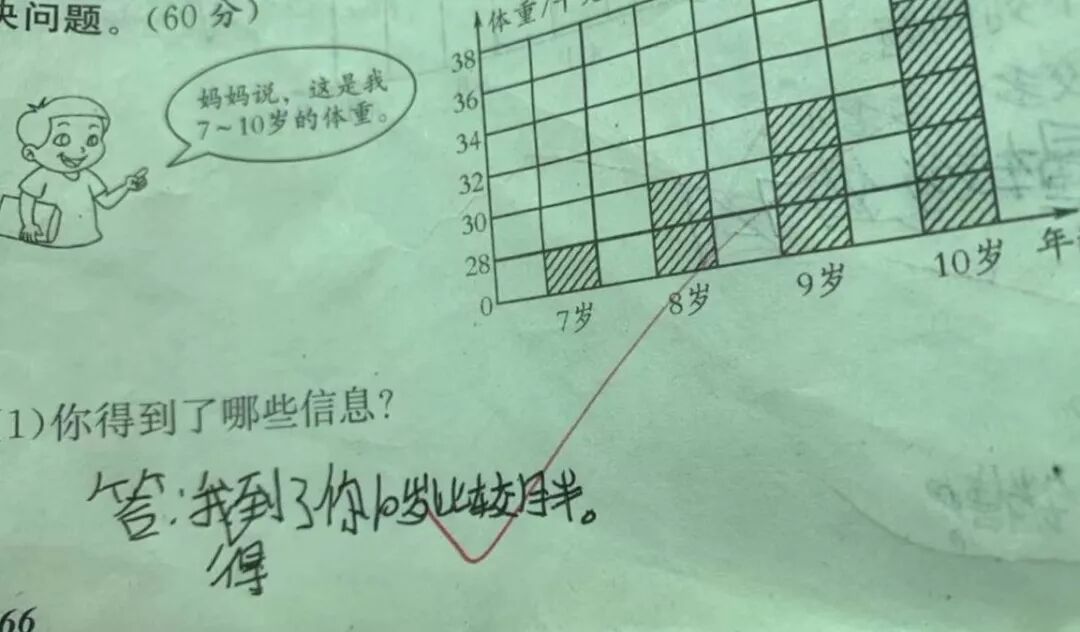 决问题。(60分)
体重/千克
妈妈说，这是我
7~10岁的体重。
38
36
34
32
30
28
0
7岁
8岁
9岁
10岁
年
(1)你得到了哪些信息?
答:我到了你10岁比较胖。
得
66